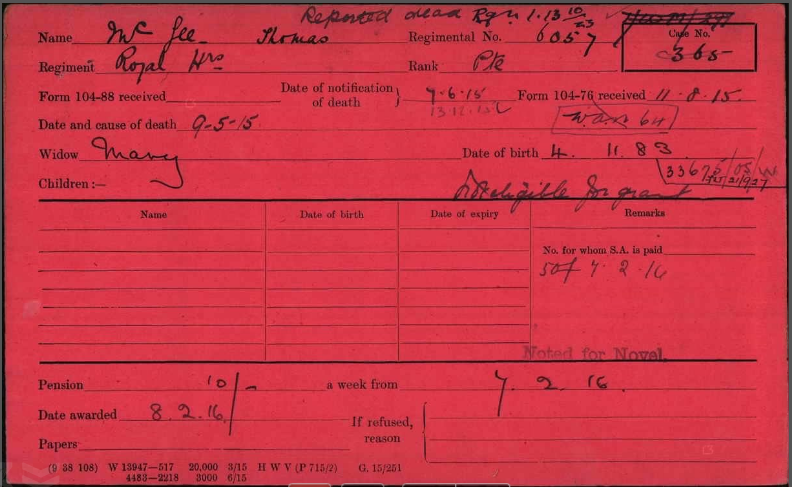 Reported dead Rgn 1.13 10/23
Name Mc Gee Thomas Regimental No. 6057 Case No.
365
Regiment Royal Hrs Rank Pte
Form 104-88 received Date of notification of death } 7.6.15 Form 104-76 received 11.8.15.
Date and cause of death 9-5-15.
Widow Mary Date of birth 4. 11. 83
Children :—
Not eligible for grant
Name Date of birth Date of expiry Remarks
No. for whom S.A. is paid
7.2.16
Noted for Novel.
Pension 10/- a week from 7.2.16.
Date awarded 8.2.16. If refused, reason
Papers
(9 38 108) W 13947—517 20,000 3/15 H W V (P 715/2) G. 15/251
4483—2218 3000 6/15